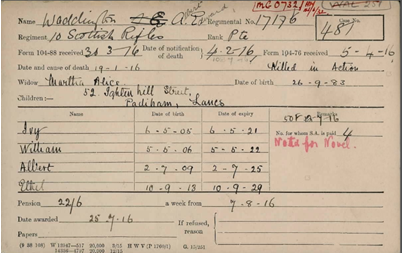 MG 0732/
Name Waddington A. E. Regimental No. 17136
487
Regiment 10 Scottish Rifles Rank Pte
Form 104-88 received 30 3 16 Date of notification of death 4-2-16 Form 104-76 received 5-4-16
Date and cause of death 19-1-16 Killed in Action
Widow Martha Alice Date of birth 26-9-83
52, Ightenhill Street,
Children:— Padiham, Lancs
Name Date of birth Date of expiry Remarks
No. for whom S.A. is paid 4
Ivy 6-5-05 6-5-21
William 5-5-06 5-5-22
Albert 2-7-09 2-7-25
Ethel 10-9-13 10-9-29
Pension 22/6 a week from 7-8-16
Date awarded 25.7.16 If refused, reason
Papers